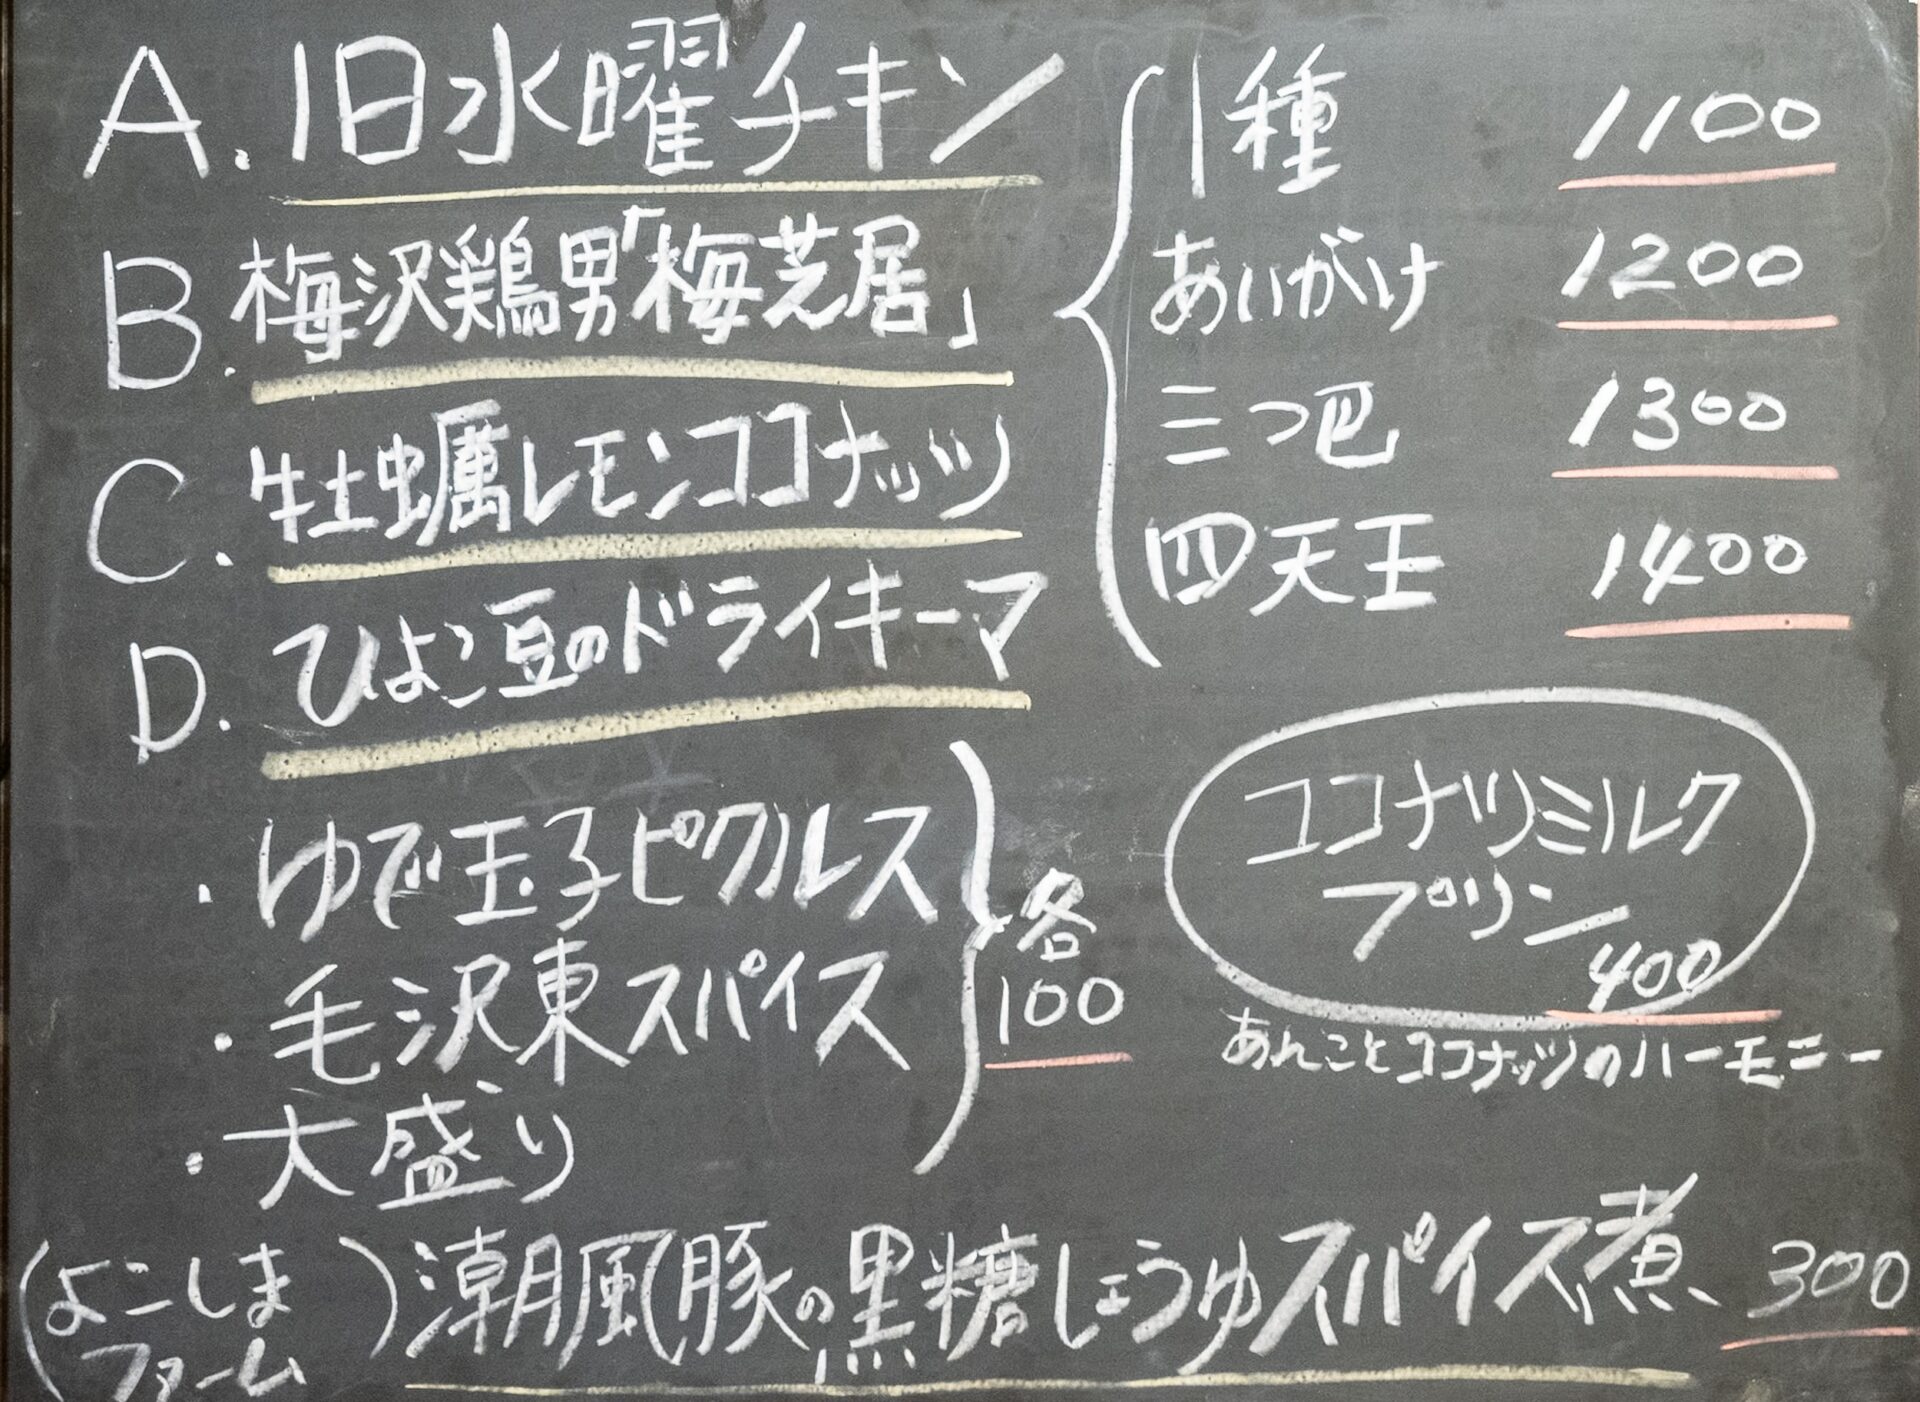 A. 旧水曜チキン
B. 梅沢鶏男「梅芝居」
C. 牡蠣レモンココナッツ
D. ひよこ豆のドライキーマ
1種 1100
あいがけ 1200
三つ巴 1300
四天王 1400
・ゆで玉子ピクルス
・毛沢東スパイス
・大盛り
各
100
ココナツミルク
プリン
400
あんことココナッツのハーモニー
(よこしま
ファーム) 潮風豚の黒糖しょうゆスパイス煮 300